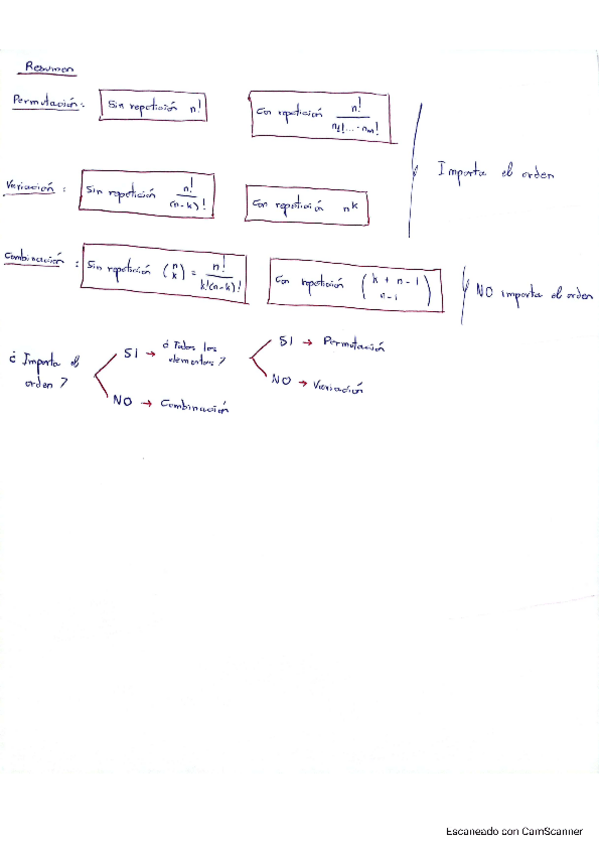 Resumen
Permutación: Sin repetición n! Con repetición n!/(n₁!...·nₘ!)
Importa el orden
Variación: Sin repetición n!/(n-k)! Con repetición nᵏ
Combinación: Sin repetición (n k) = n!/(k!(n-k)!) Con repetición (k+n-1 n-1)
NO importa el orden
¿Importa el orden?
SI → ¿Todos los elementos?
SI → Permutación
NO → Variación
NO → Combinación
Escaneado con CamScanner